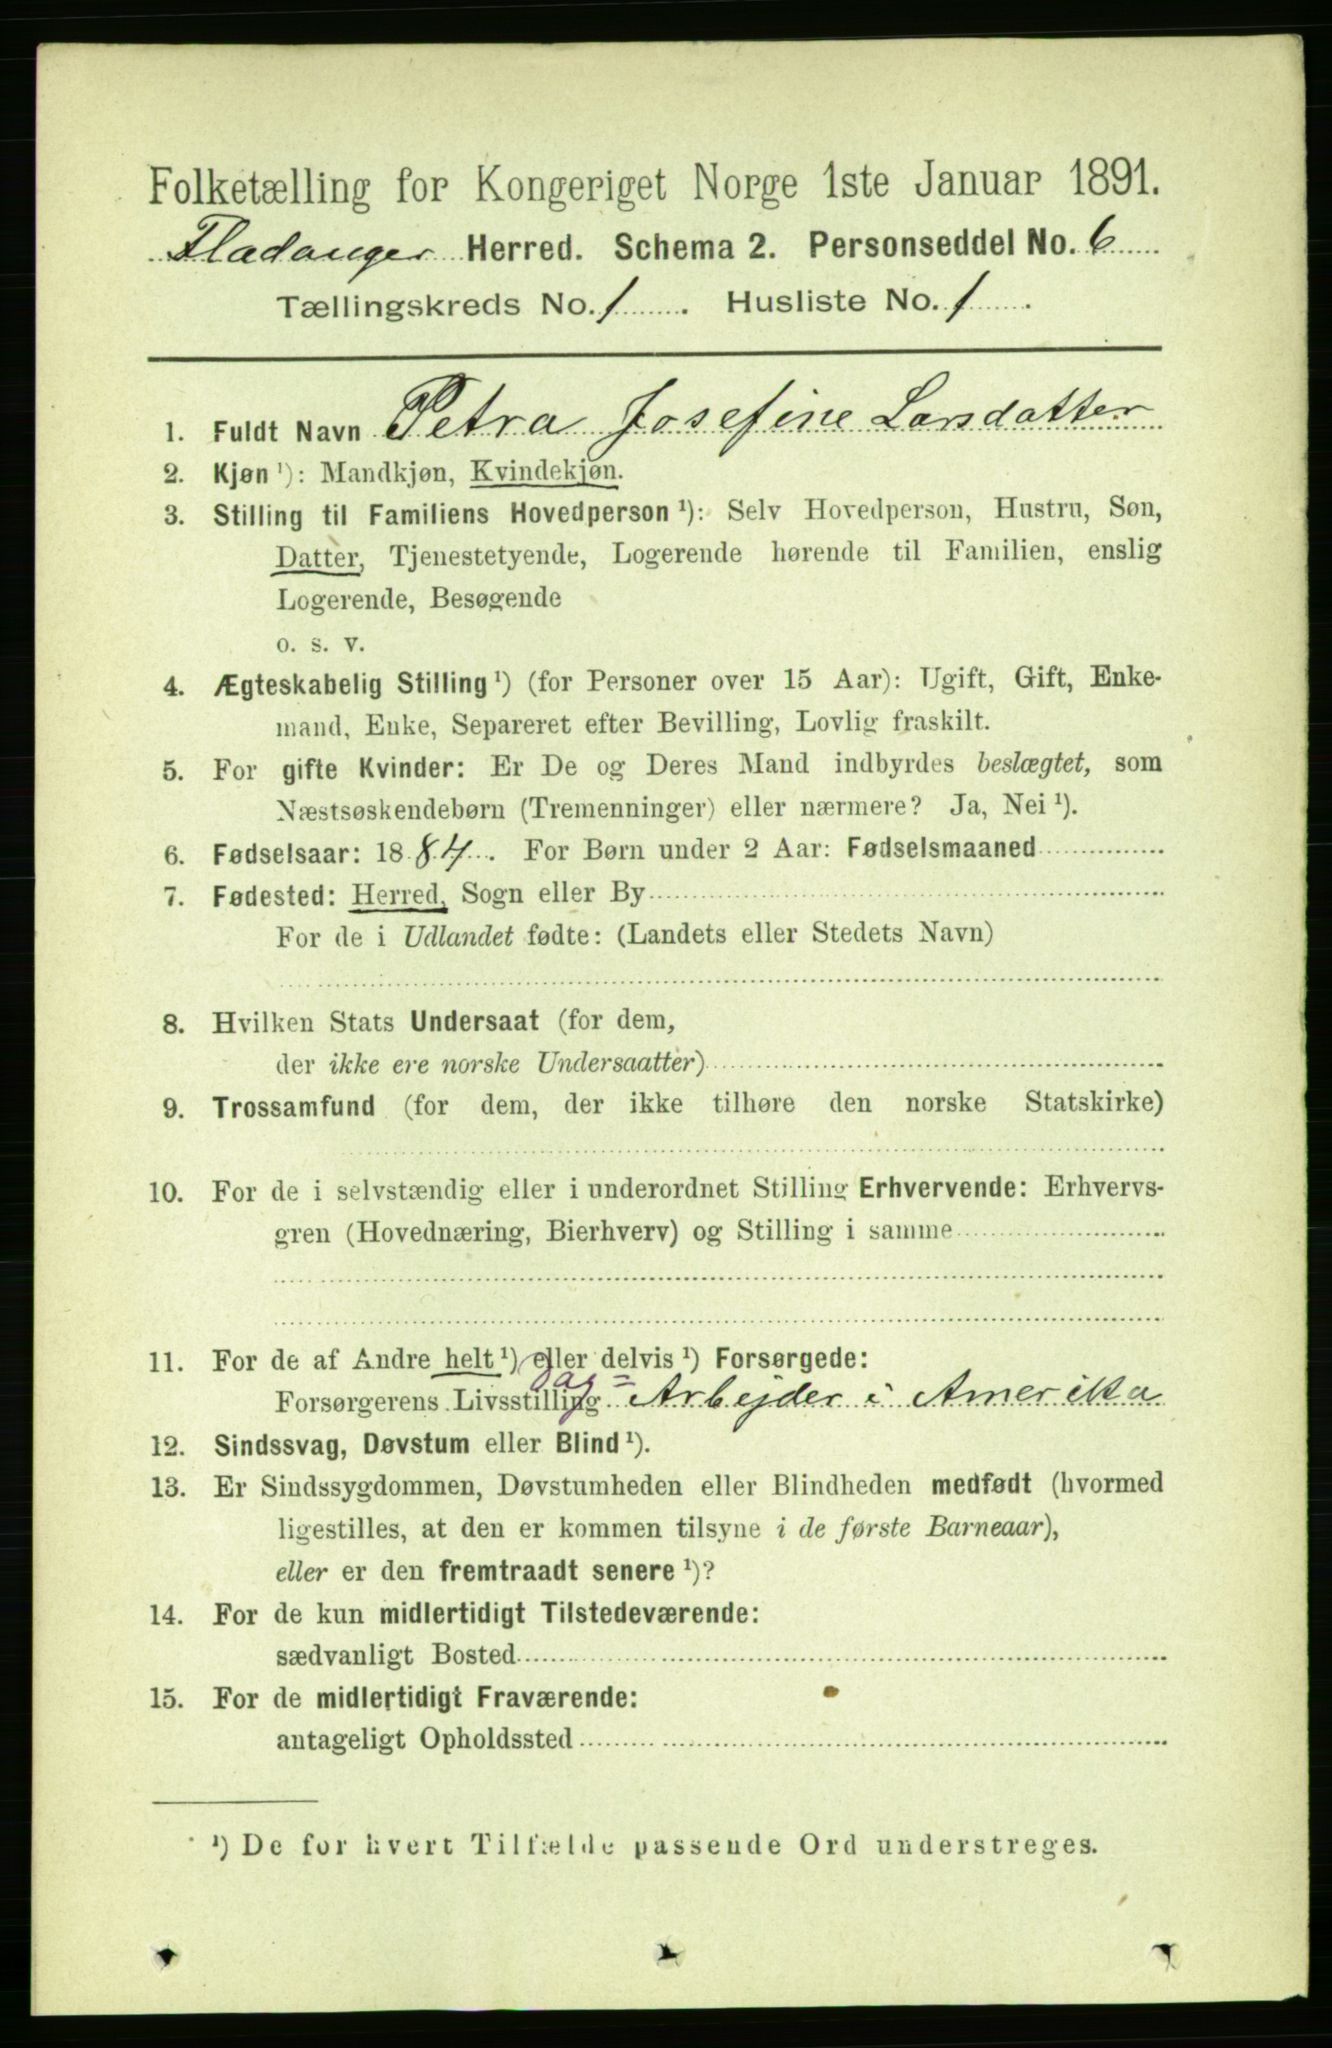 Folketælling for Kongeriget Norge 1ste Januar 1891.
Fladanger Herred. Schema 2. Personseddel No. 6
Tællingskreds No. 1. Husliste No. 1.
1. Fuldt Navn Petra Josefine Larsdatter
2. Kjøn ¹): Mandkjøn, Kvindekjøn.
3. Stilling til Familiens Hovedperson ¹): Selv Hovedperson, Hustru, Søn,
Datter, Tjenestetyende, Logerende hørende til Familien, enslig
Logerende, Besøgende
o. s. v.
4. Ægteskabelig Stilling ¹) (for Personer over 15 Aar): Ugift, Gift, Enke-
mand, Enke, Separeret efter Bevilling, Lovlig fraskilt.
5. For gifte Kvinder: Er De og Deres Mand indbyrdes beslægtet, som
Næstsøskendebørn (Tremenninger) eller nærmere? Ja, Nei ¹).
6. Fødselsaar: 1884. For Børn under 2 Aar: Fødselsmaaned
7. Fødested: Herred, Sogn eller By
For de i Udlandet fødte: (Landets eller Stedets Navn)
8. Hvilken Stats Undersaat (for dem,
der ikke ere norske Undersaatter)
9. Trossamfund (for dem, der ikke tilhøre den norske Statskirke)
10. For de i selvstændig eller i underordnet Stilling Erhvervende: Erhvervs-
gren (Hovednæring, Bierhverv) og Stilling i samme
11. For de af Andre helt ¹) eller delvis ¹) Forsørgede:
Forsørgerens Livsstilling Dag= Arbejder i Amerika
12. Sindssvag, Døvstum eller Blind ¹).
13. Er Sindssygdommen, Døvstumheden eller Blindheden medfødt (hvormed
ligestilles, at den er kommen tilsyne i de første Barneaar),
eller er den fremtraadt senere ¹)?
14. For de kun midlertidigt Tilstedeværende:
sædvanligt Bosted
15. For de midlertidigt Fraværende:
antageligt Opholdssted
¹) De for hvert Tilfælde passende Ord understreges.